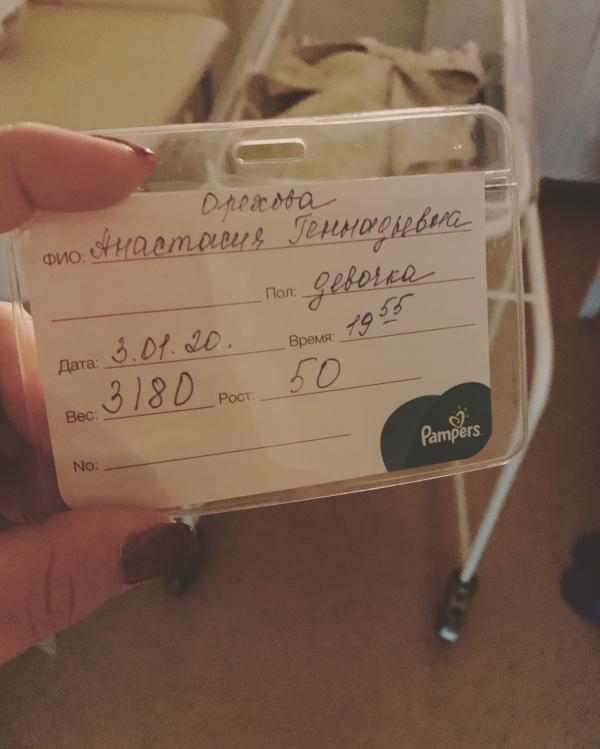 Орехова
ФИО: Анастасия Геннадьевна
Пол: девочка
Дата: 3.01.20. Время: 19 55
Вес: 3180 Рост: 50
No:
Pampers